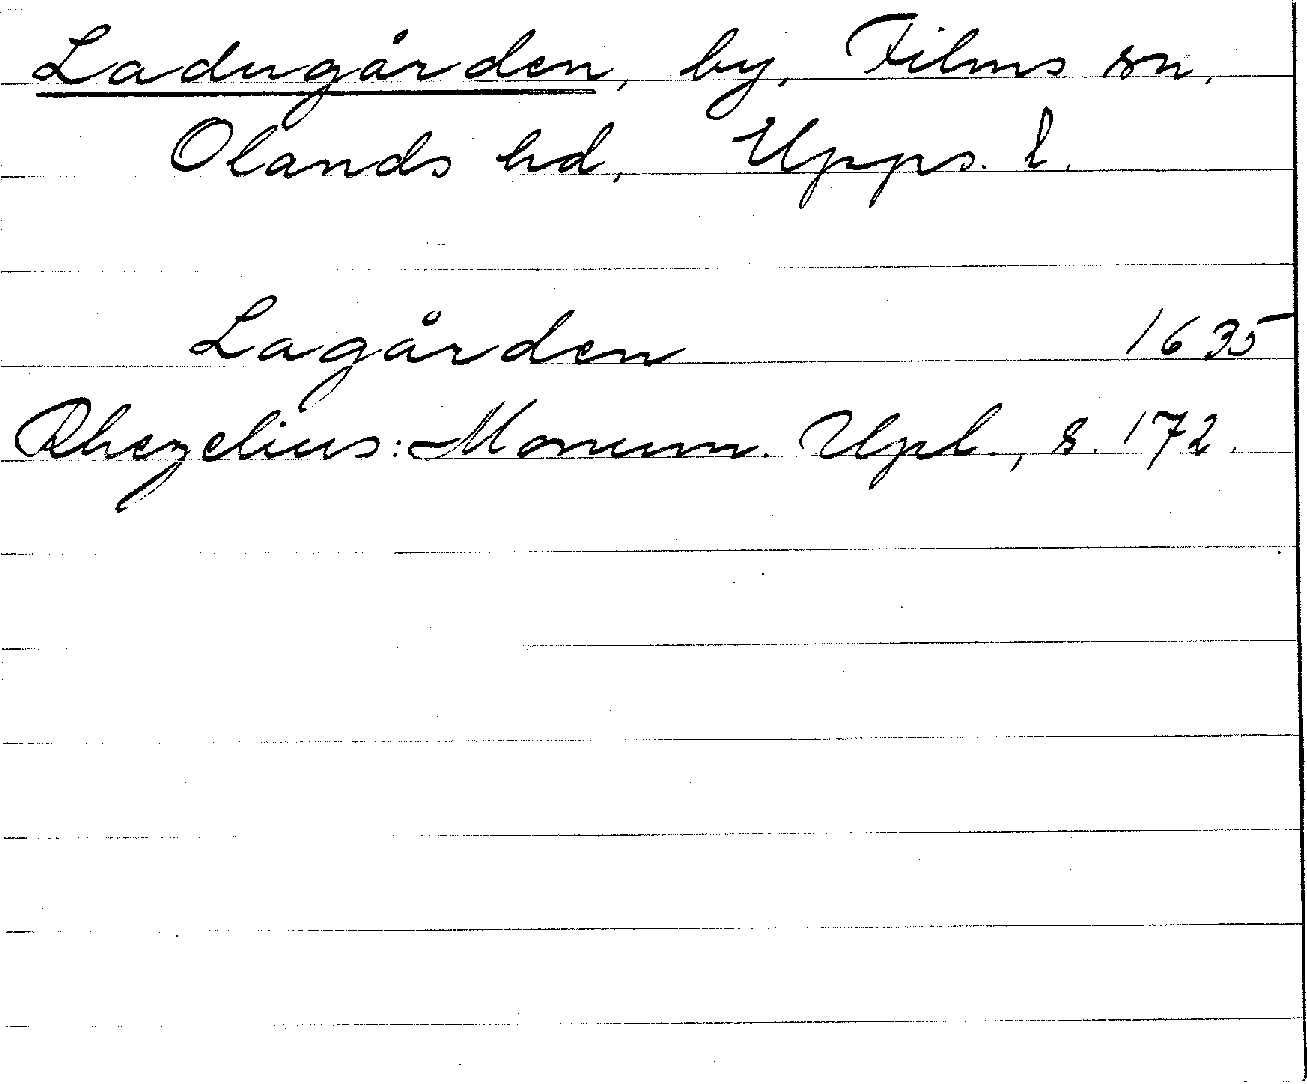 Ladugården, by, Films sn,
Olands hd, Upps. l.
Lagården 1635
Rhezelius: Monum. Upl., s. 172.